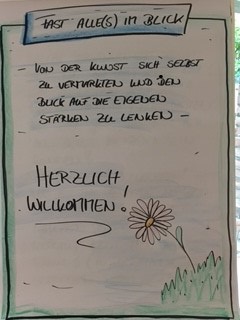 FAST ALLE(S) IM BLICK
- VON DER KUNST SICH SELBST
ZU VERMARKTEN UND DEN
BLICK AUF DIE EIGENEN
STÄRKEN ZU LENKEN -
HERZLICH
WILLKOMMEN!